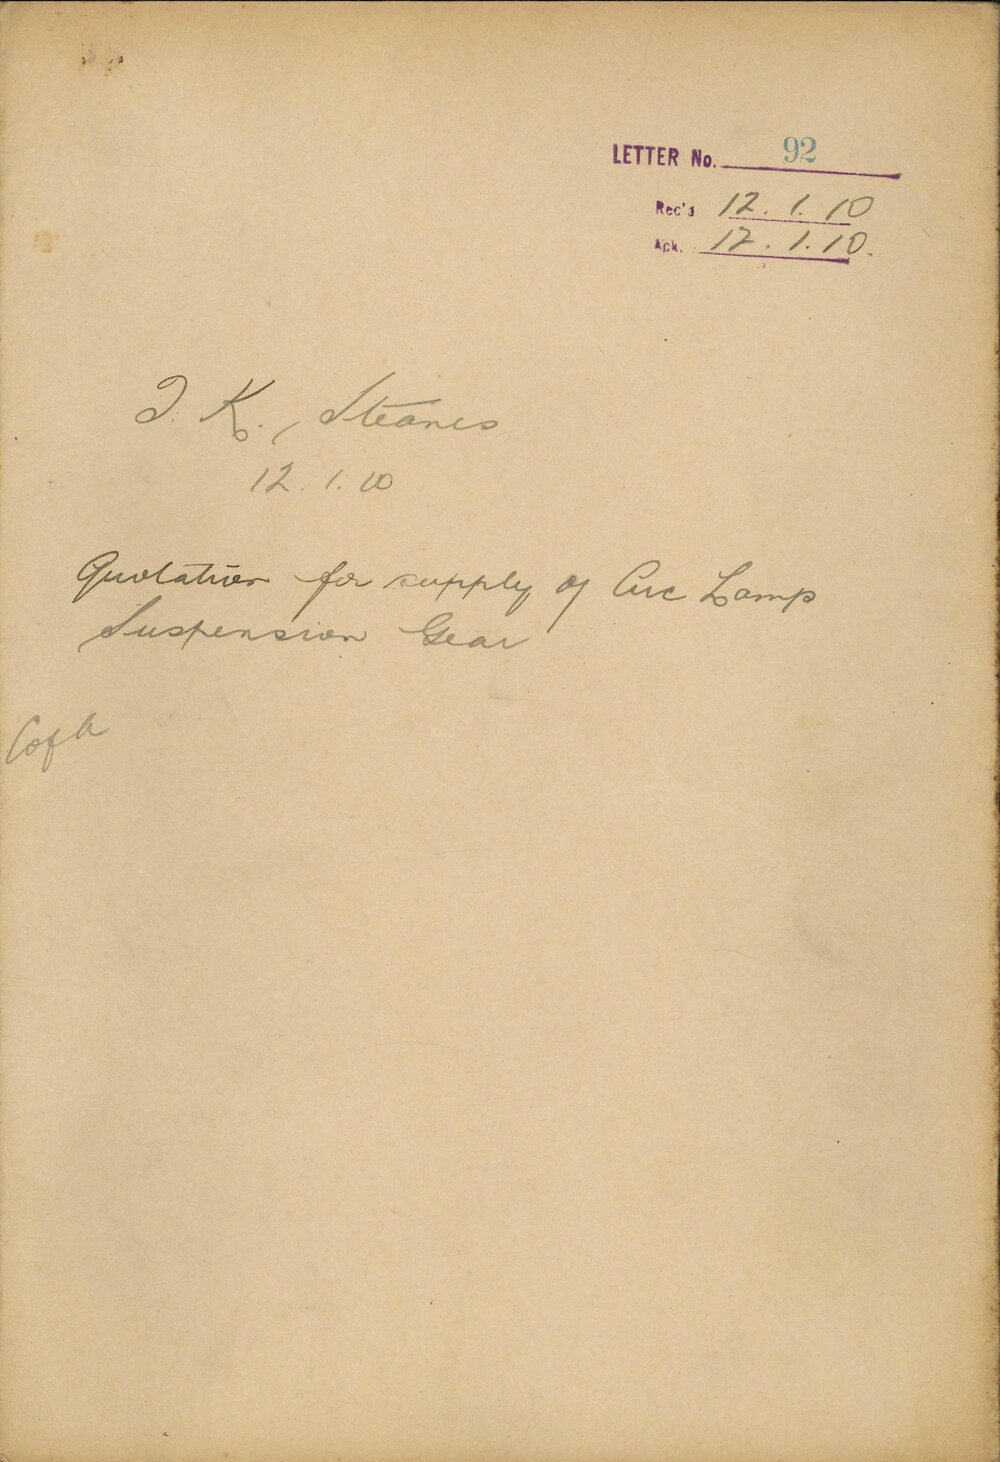 LETTER No. 92
Rec'd 12.1.10
Ack. 12.1.10.
J. K., Steanes
12.1.10
Quotation for supply of Arc Lamp
Suspension Gear
Cofa